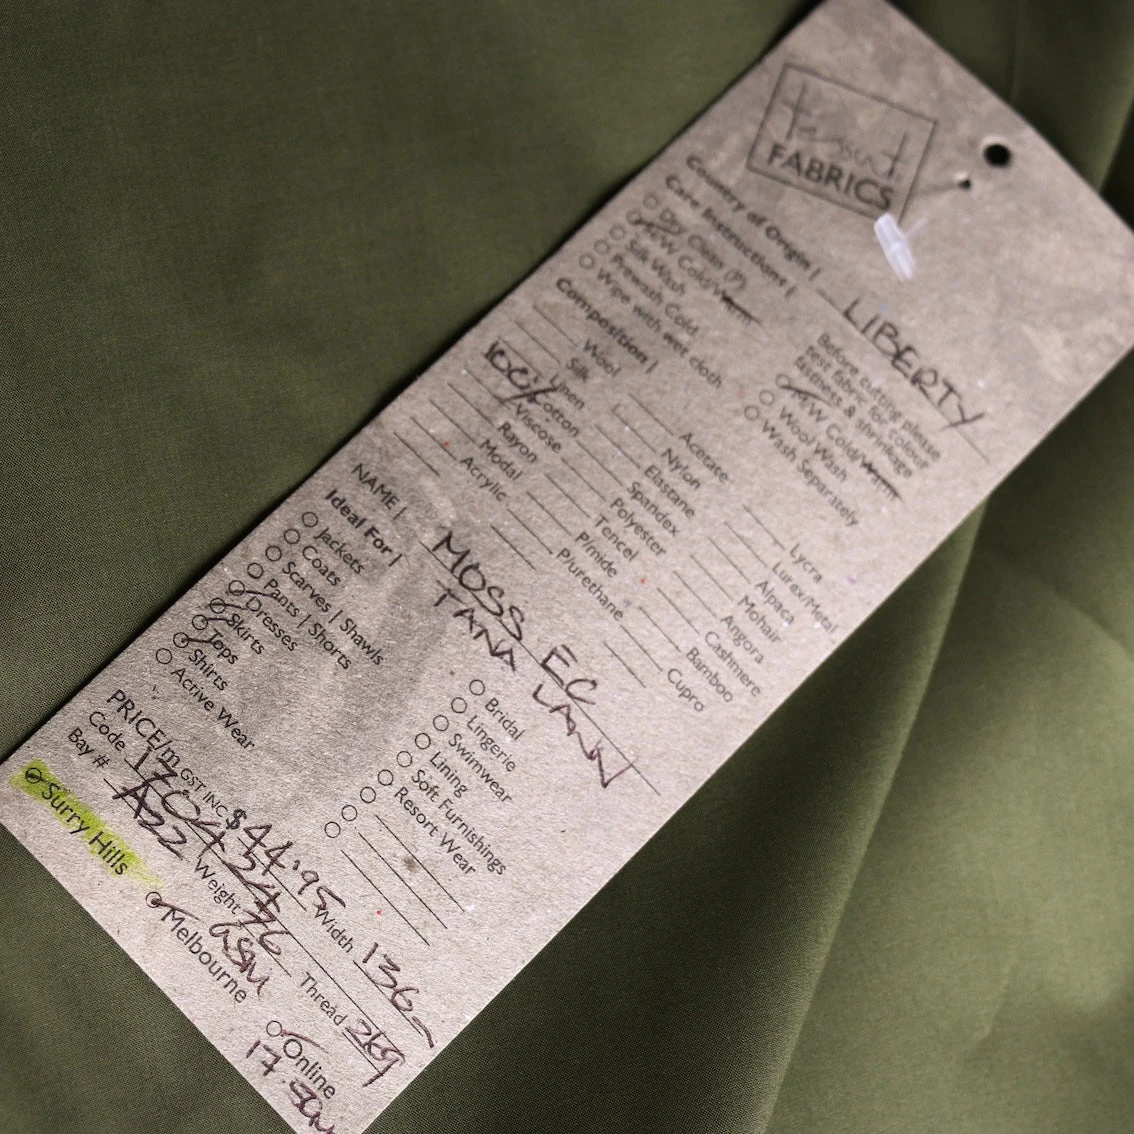 FABRICS
Country of Origin | LIBERTY
Care Instructions |
Dry Clean (P)
M/W Cold/Warm
Silk Wash
Prewash Cold
Wipe with wet cloth
Before cutting please
test fabric for colour
fastness & shrinkage
M/W Cold/Warm
Wool Wash
Wash Separately
Composition |
Wool
Silk
Linen
100% Cotton
Viscose
Rayon
Modal
Acrylic
Acetate
Nylon
Elastane
Spandex
Polyester
Tencel
P/mide
P/urethane
Lycra
Lurex/Metal
Alpaca
Mohair
Angora
Cashmere
Bamboo
Cupro
NAME | MOSS EC
TANA LAWN
Ideal For |
Jackets
Coats
Scarves | Shawls
Pants | Shorts
Dresses
Skirts
Tops
Shirts
Active Wear
Bridal
Lingerie
Swimwear
Lining
Soft Furnishings
Resort Wear
PRICE/m GST INC $ 44.95 Width 136
Code Weight Thread
Bay # A22
Surry Hills
Melbourne
Online